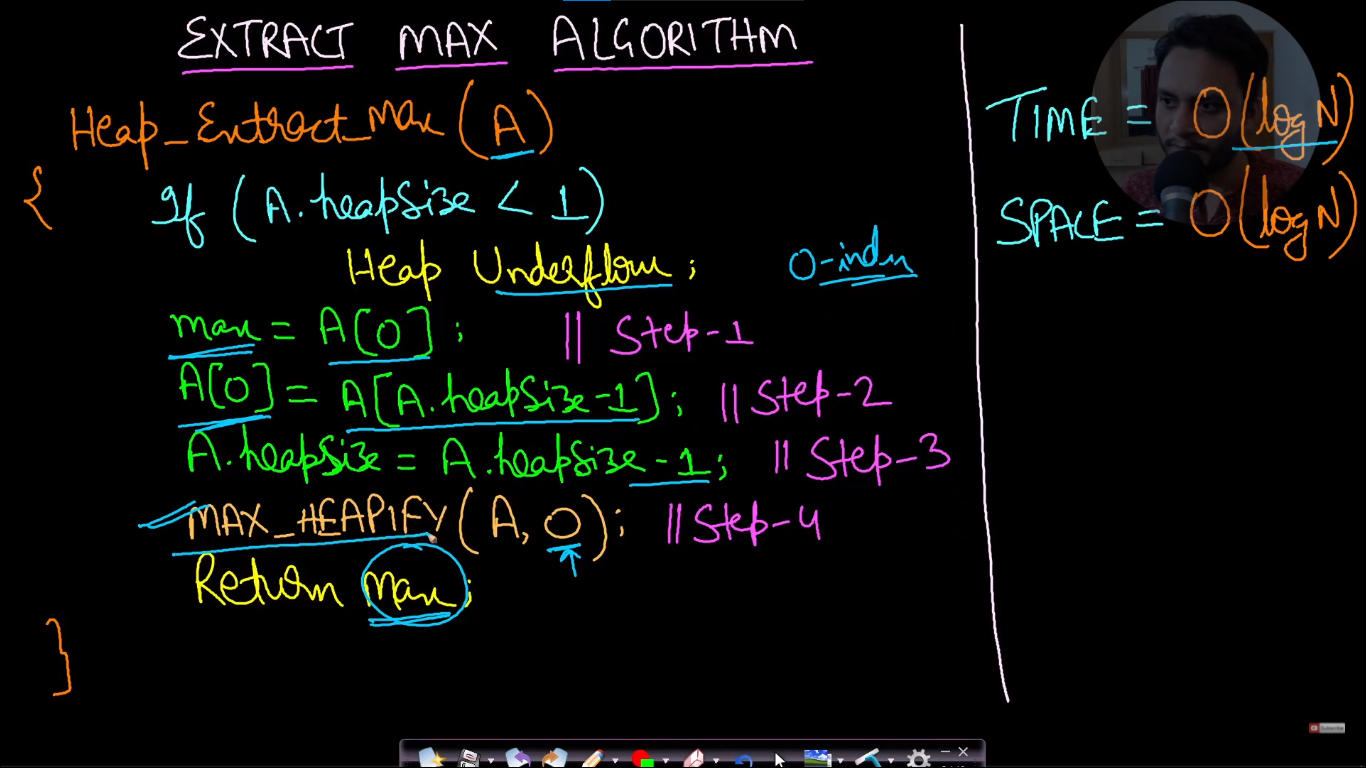 EXTRACT MAX ALGORITHM
Heap_Extract_Max (A)
{
If (A.heapSize < 1)
Heap Underflow;
0-index
max = A[0]; || Step-1
A[0] = A[A.heapSize-1]; || Step-2
A.heapSize = A.heapSize-1; || Step-3
MAX_HEAPIFY(A, 0); || Step-4
Return Max;
}
TIME = O(log N)
SPACE = O(log N)
Subscribe